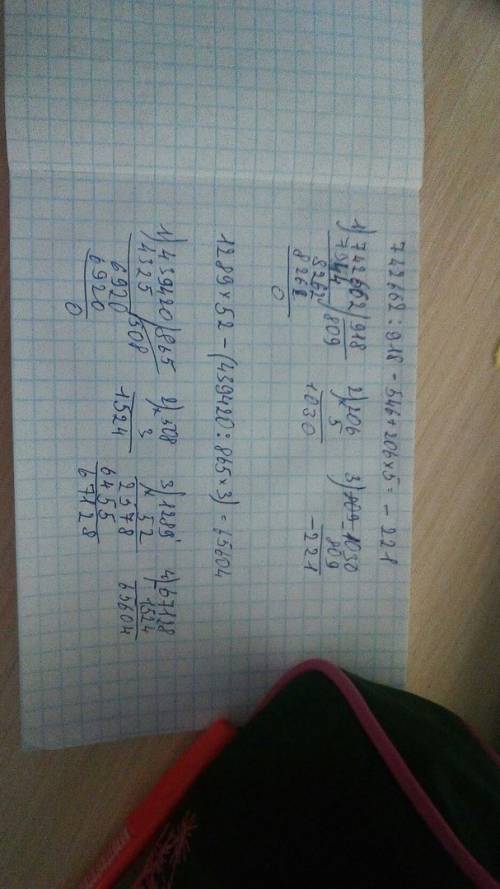 742662:918-546+206×5=-221
1) 742662 | 918
7344 | 809
8262
8262
0
2) 206
× 5
1030
3) 1030
809
-221
1289×52-(439420:865×3)=65604
1) 439420 | 865
4325 | 508
6920
6920
0
2) 508
× 3
1524
3) 1289
× 52
2578
6455
67128
4) 67128
1524
65604